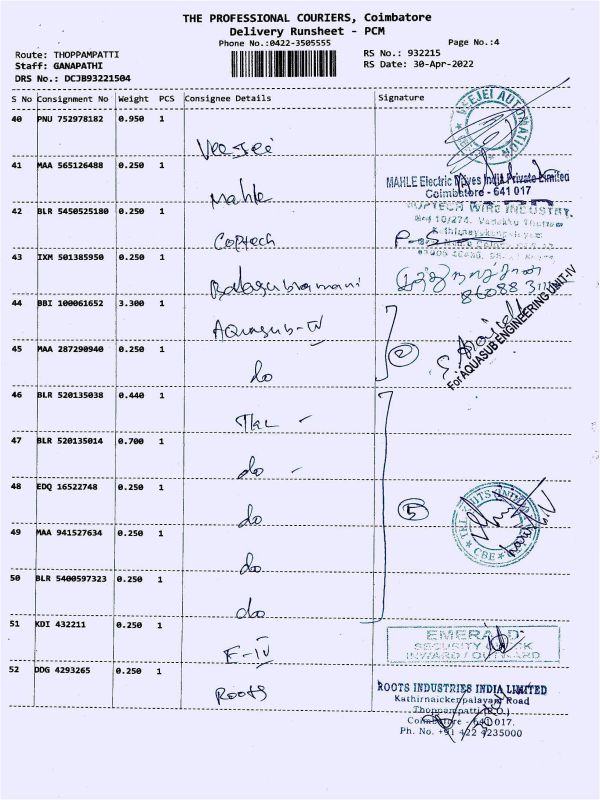 THE PROFESSIONAL COURIERS, Coimbatore
Delivery Runsheet - PCM
Phone No.:0422-3505555
Page No.:4
Route: THOPPAMPATTI
RS No.: 932215
Staff: GANAPATHI
RS Date: 30-Apr-2022
DRS No.: DCJB93221504
S No Consignment No Weight PCS Consignee Details Signature
40 PNU 752978182 0.950 1
VEEJEI AUTOMATION
Veejei
41 MAA 565126488 0.250 1
MAHLE Electric Drives India Private Limited
Coimbatore - 641 017
Mahle
42 BLR 5450525180 0.250 1
COPTECH WIRE INDUSTRY.
Coptech
43 IXM 501385950 0.250 1
Balasubramani
44 BBI 100061652 3.300 1
Aquasub-IV
For AQUASUB ENGINEERING UNIT-IV
45 MAA 287290940 0.250 1
do
2
46 BLR 520135038 0.440 1
47 BLR 520135014 0.700 1
do
48 EDQ 16522748 0.250 1
do
5
CBE
49 MAA 941527634 0.250 1
do
50 BLR 5400597323 0.250 1
do
51 KDI 432211 0.250 1
E-IV
EMERALD
SECURITY CHECK
INWARD / OUTWARD
52 DDG 4293265 0.250 1
Roots
ROOTS INDUSTRIES INDIA LIMITED
Kathirnaickenpalayam Road
Thoppampatti (P.O.)
Coimbatore - 641 017.
Ph. No. +91 422 4235000